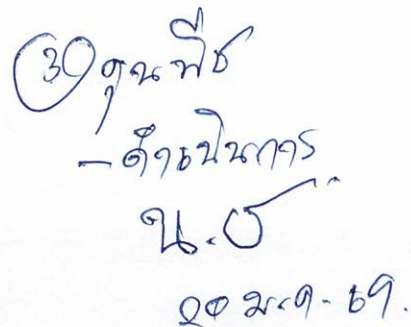 ③ คุณพืช
- ดำเนินการ
น.ช
๒๐ ม.ค. ๖๑.